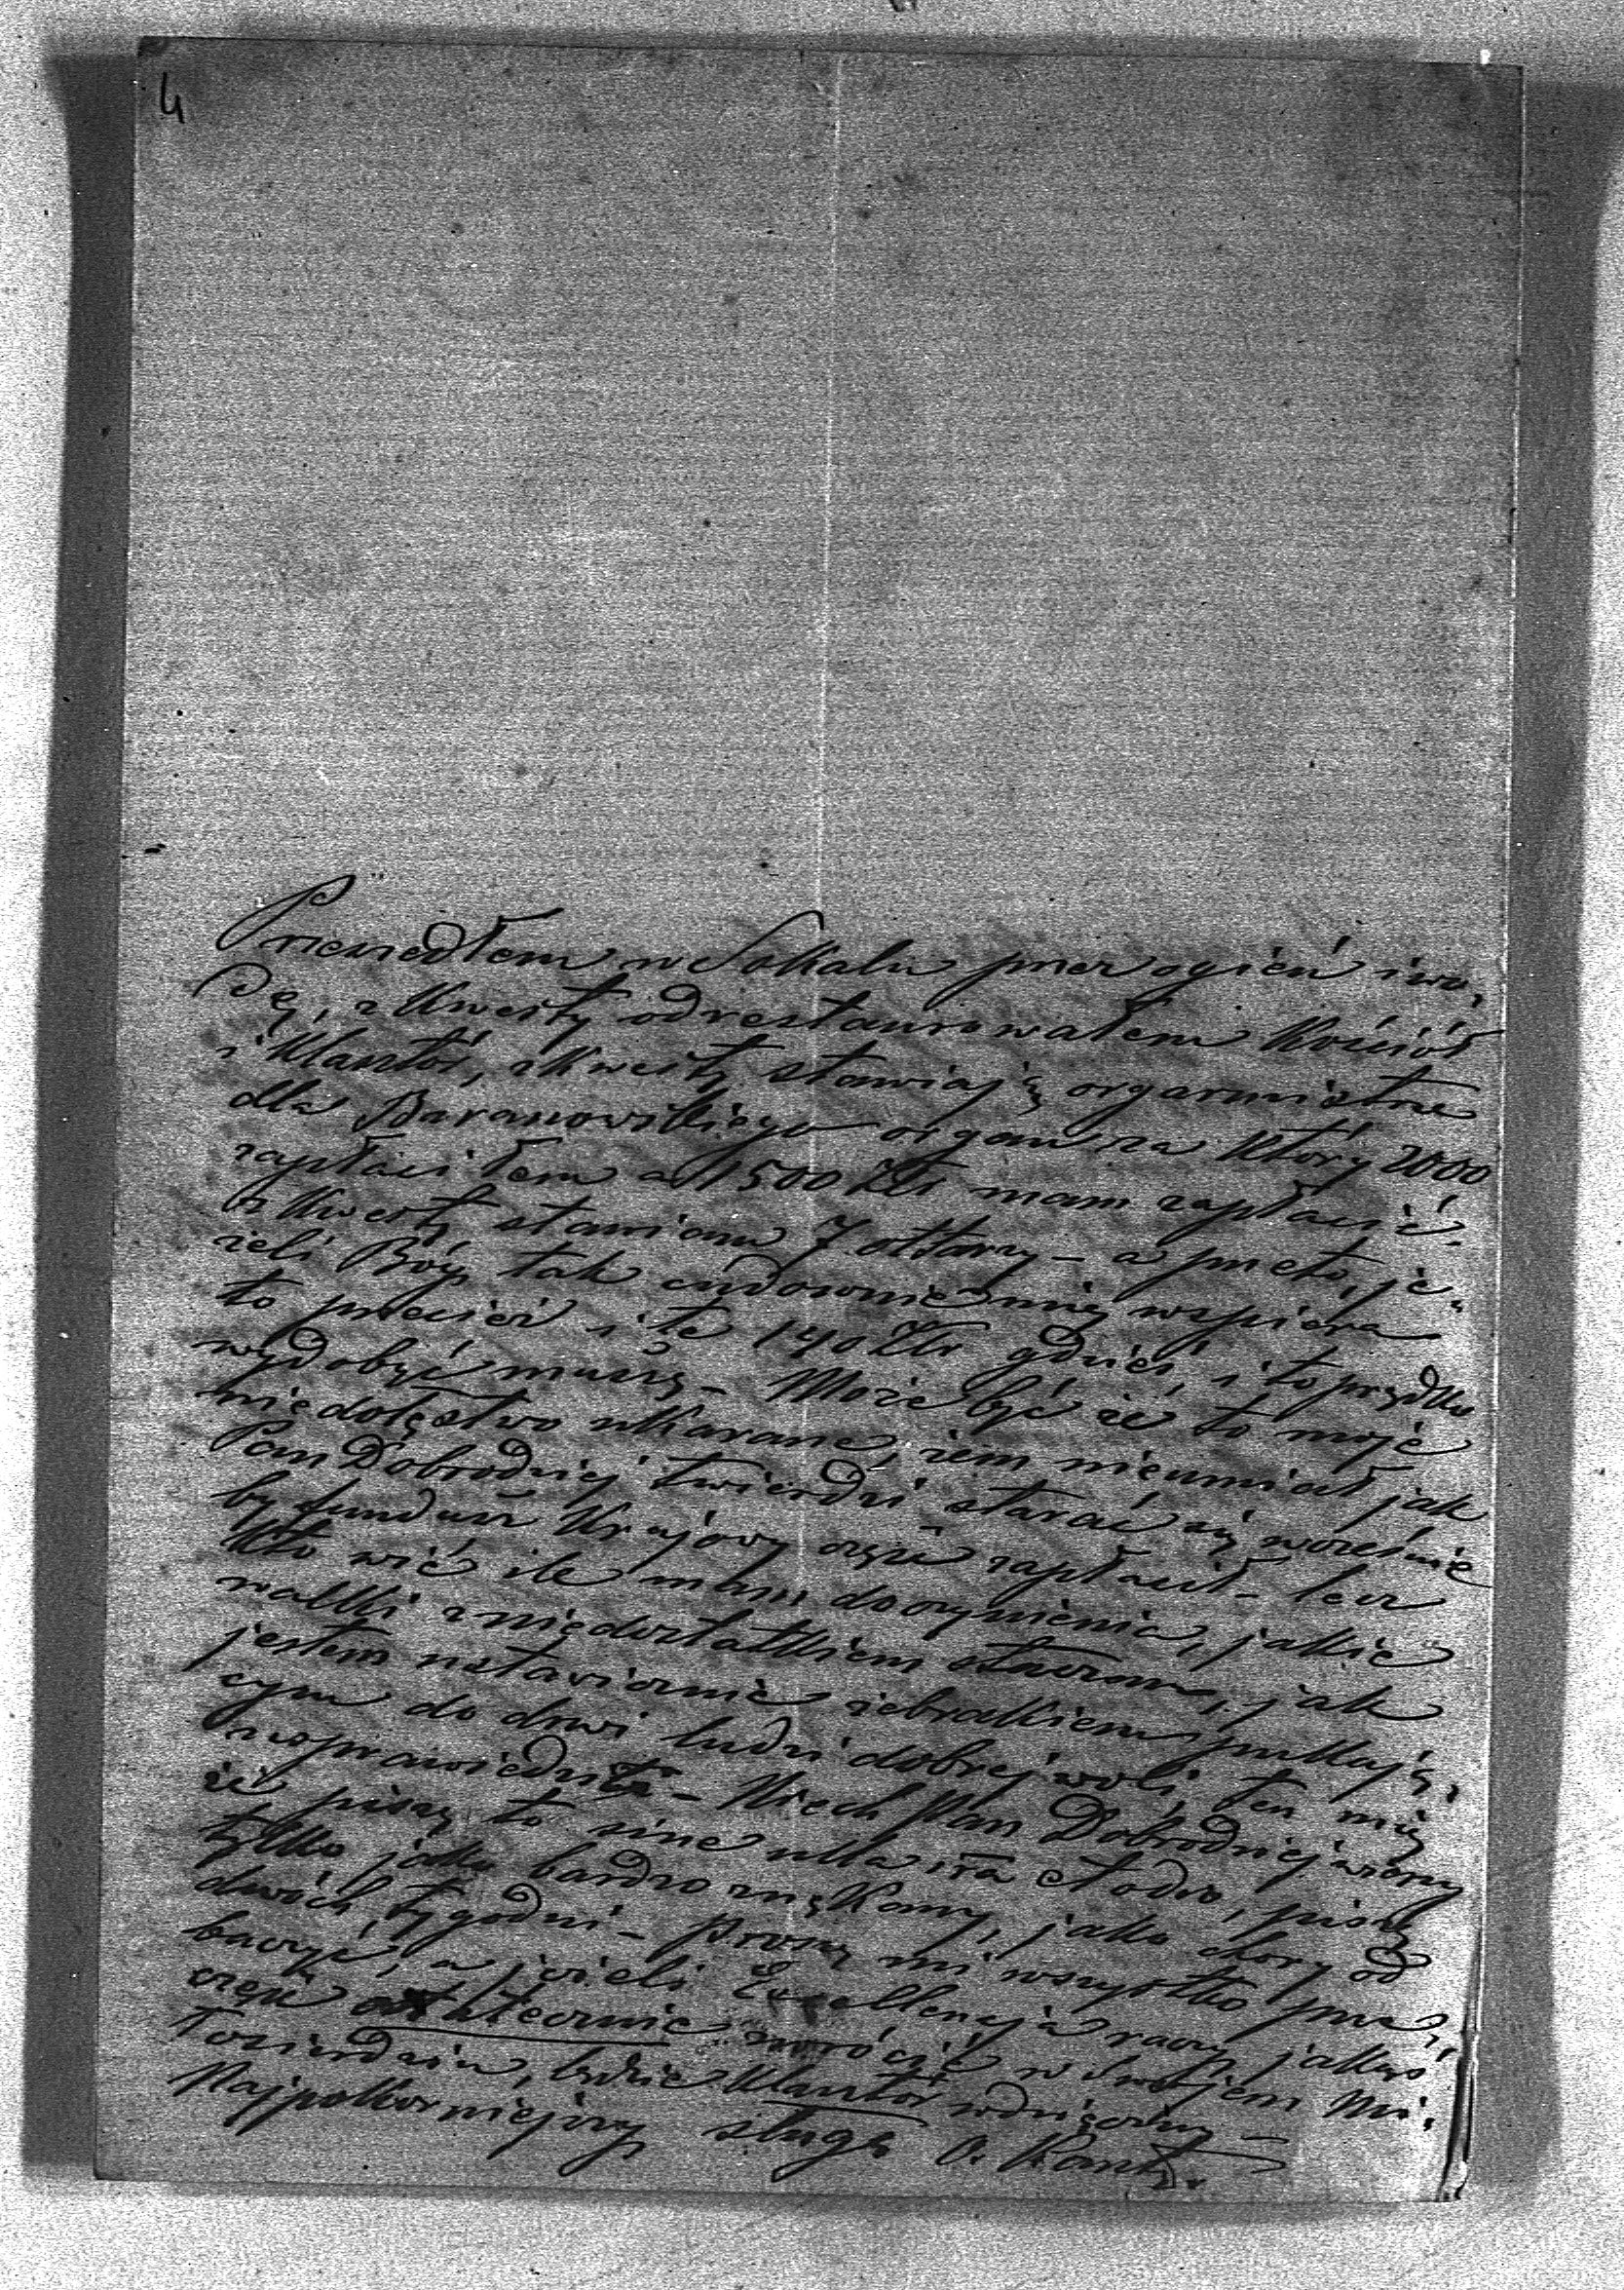 4
Przeszedłem w Sokalu przez ogień i wo,
dę, z Kwesty odrestaurowałem Kościół
i Klasztór, z Kwesty stawiają organmistrze
dla Baranowskiego organ za Który 2000
zapłaciłem a 1500 Złr mam zapłacić.
z Kwesty stawiam 7 ołtarzy – a przeto, je,
żeli Bóg tak cudownie mię wspiera
to przecież i te 140 Złr gdzieś i to prędko
wydobyć muszę – Może być że to moje
niedołęstwo ukarane, żem nieumiał jak
Pan Dobrodziej twierdzi starać się wcześnie
by fundusz Krajowy część zapłacił – lecz
Kto wié ile mam do czynienia, jakie
walki z niedostatkiem staczam, jak
jestem ustawicznie żebrakiem pukają,
cym do drzwi ludzi dobréj woli, ten mię
usprawiedliwi – Niech Pan Dobrodziej wierzy
że piszę to sine ulla ira et odio, piszę
tylko jako bardzo znękany, jako chory od
dwóch tygodni – Proszę mi wszystko prze,
baczyć, a jeżeli Excellencja raczy jakąś
część ostatecznie zwrócić w Swojem Mi,
łosierdziu, będzie Klasztór wdzięczny –
Najpokorniejszy sługa O. Kanty.